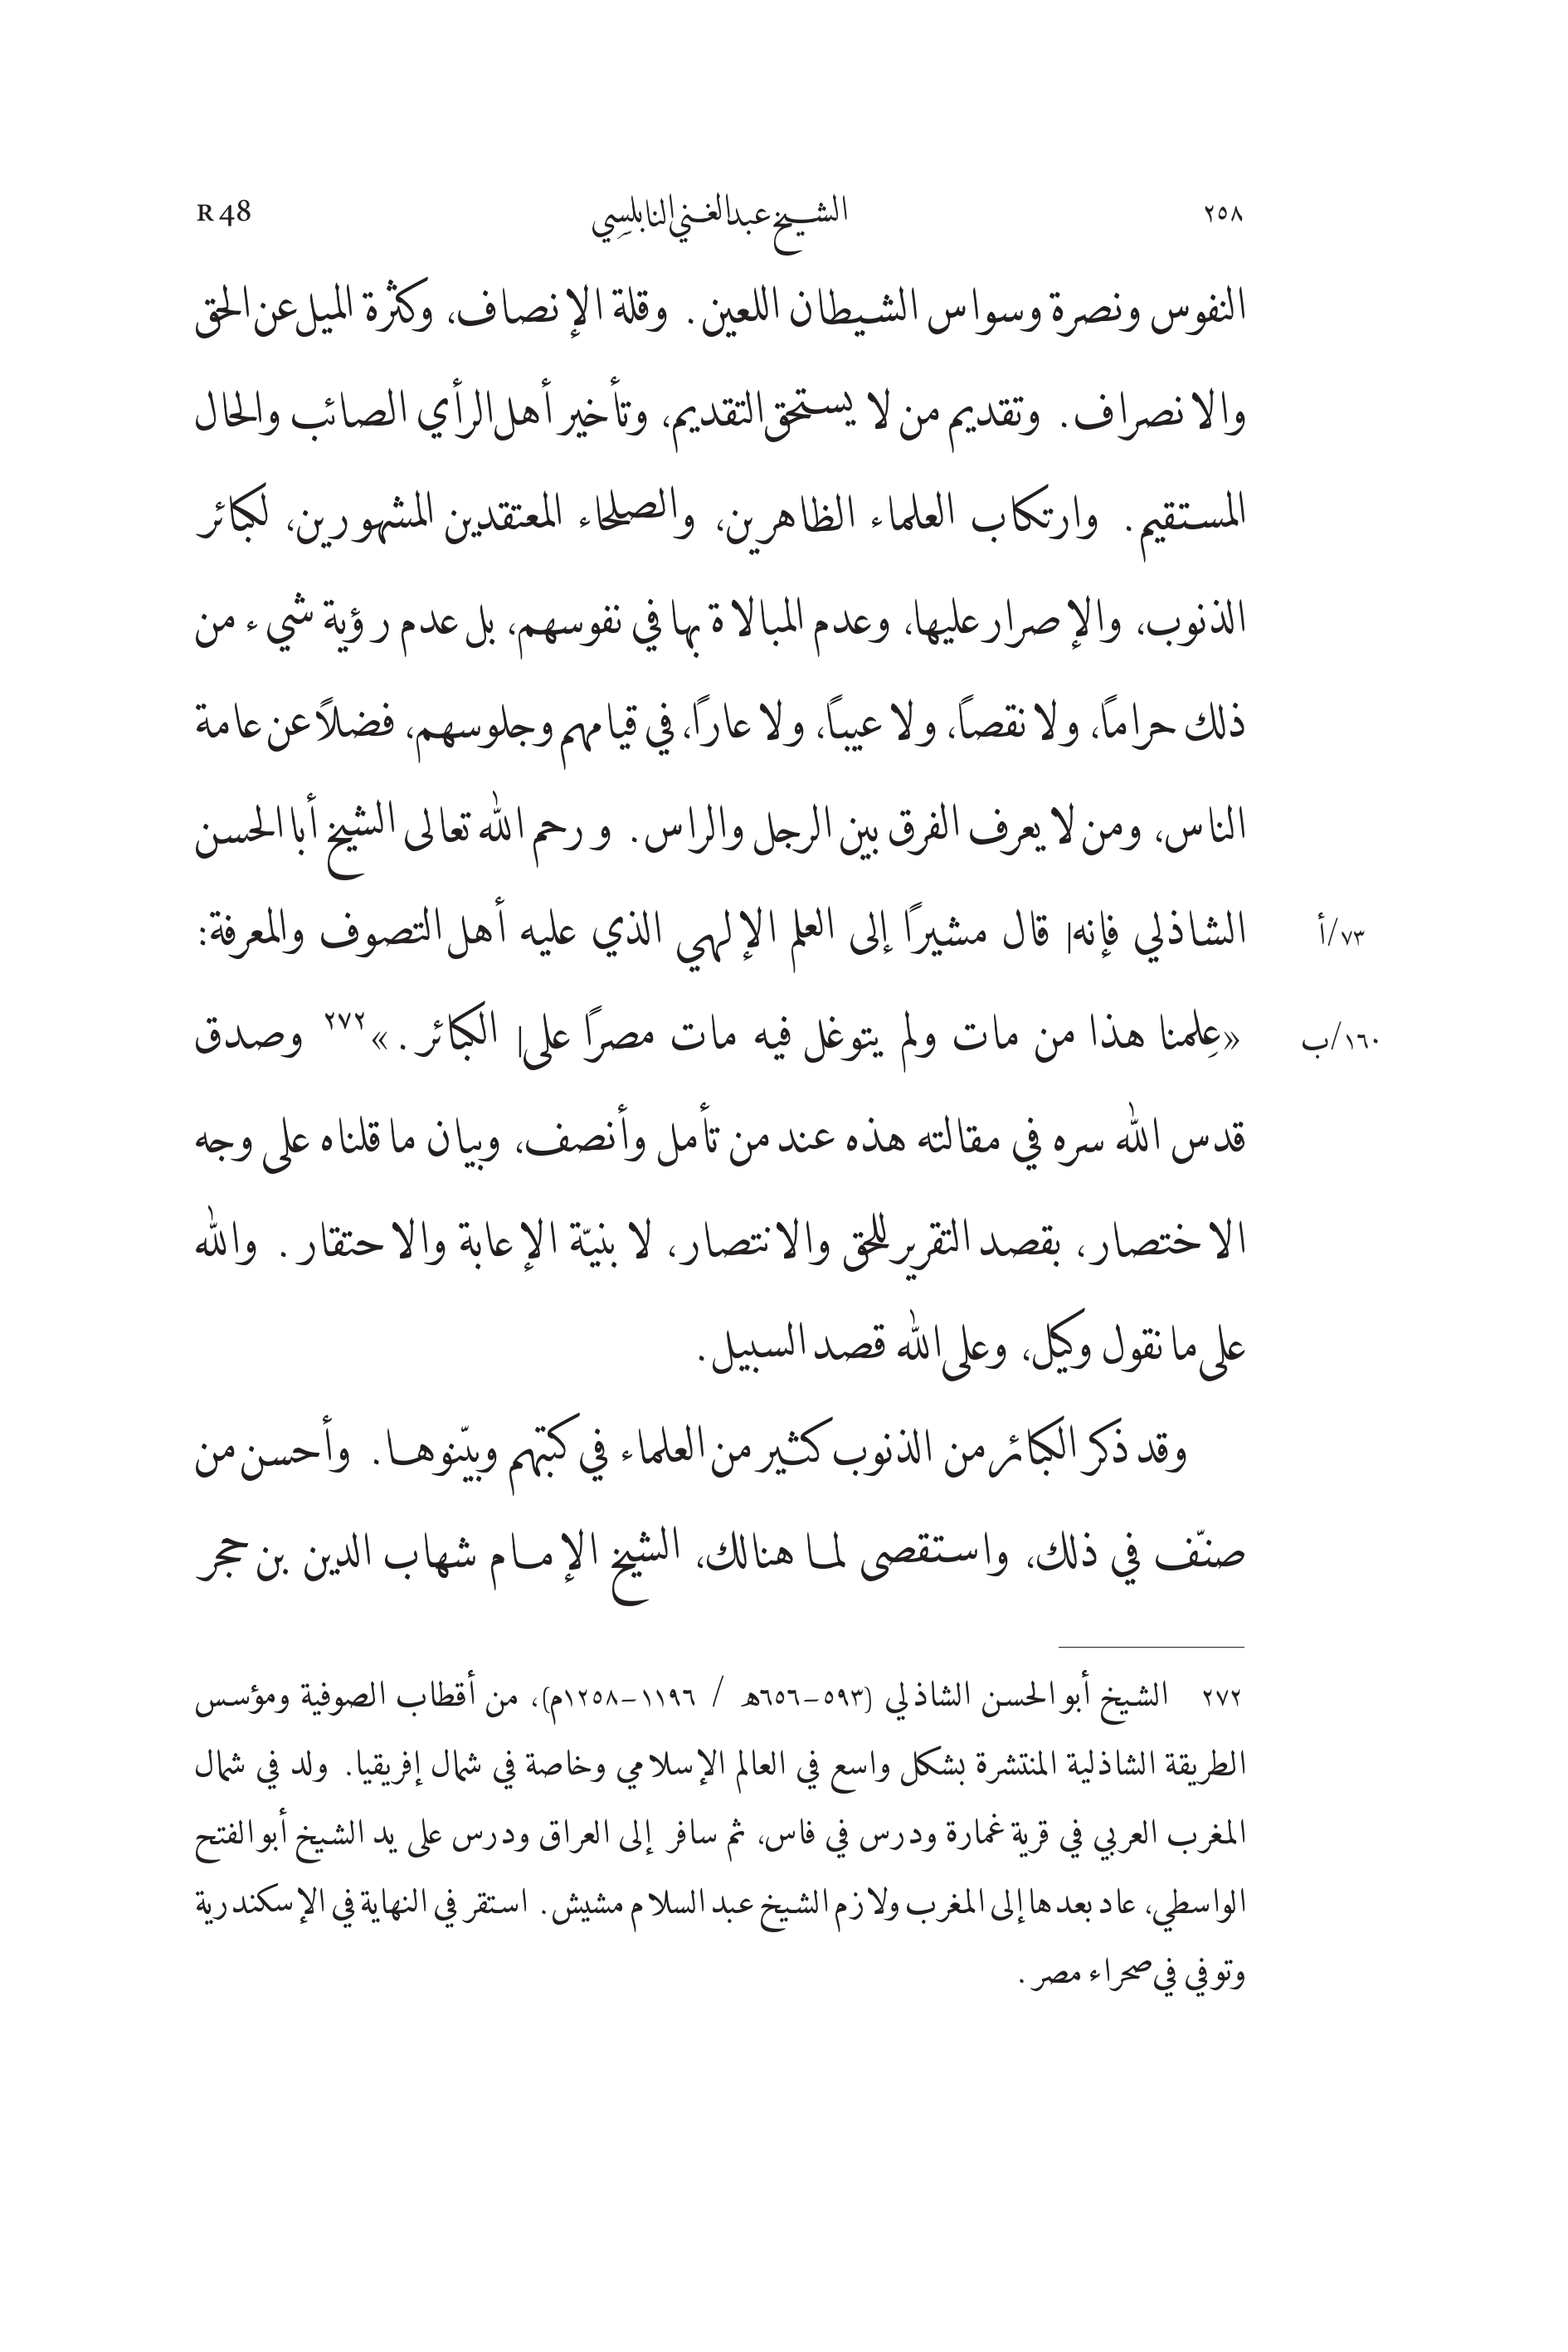 ٢٥٨ الشيخ عبد الغني النابلسِي R 48
النفوس ونصرة وسواس الشيطان اللعين. وقلة الإنصاف، وكثرة الميل عن الحق
والانصراف. وتقديم من لا يستحق التقديم، وتأخير أهل الرأي الصائب والحال
المستقيم. وارتكاب العلماء الظاهرين، والصلحاء المعتقدين المشهورين، لكبائر
الذنوب، والإصرار عليها، وعدم المبالاة بها في نفوسهم، بل عدم رؤية شيء من
ذلك حراماً، ولا نقصاً، ولا عيباً، ولا عارًا، في قيامهم وجلوسهم، فضلاً عن عامة
الناس، ومن لا يعرف الفرق بين الرجل والراس. ورحم الله تعالى الشيخ أبا الحسن
٧٣/أ الشاذلي فإنه| قال مشيرًا إلى العلم الإلهي الذي عليه أهل التصوف والمعرفة:
١٦٠/ب «عِلمنا هذا من مات ولم يتوغل فيه مات مصرًا على| الكبائر.»٢٧٢ وصدق
قدس الله سره في مقالته هذه عند من تأمل وأنصف، وبيان ما قلناه على وجه
الاختصار، بقصد التقرير للحق والانتصار، لا بنيّة الإعابة والاحتقار. والله
على ما نقول وكيل، وعلى الله قصد السبيل.
وقد ذكر الكبائر من الذنوب كثير من العلماء في كتبهم وبيّنوها. وأحسن من
صنّف في ذلك، واستقصى لما هنالك، الشيخ الإمام شهاب الدين بن حجر
٢٧٢ الشيخ أبو الحسن الشاذلي (٥٩٣–٦٥٦ه / ١١٩٦–١٢٥٨م)، من أقطاب الصوفية ومؤسس
الطريقة الشاذلية المنتشرة بشكل واسع في العالم الإسلامي وخاصة في شمال إفريقيا. ولد في شمال
المغرب العربي في قرية غمارة ودرس في فاس، ثم سافر إلى العراق ودرس على يد الشيخ أبو الفتح
الواسطي، عاد بعدها إلى المغرب ولازم الشيخ عبد السلام مشيش. استقر في النهاية في الإسكندرية
وتوفي في صحراء مصر.